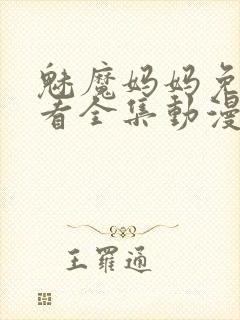 魅魔妈妈免
看全集動漫
王羅通